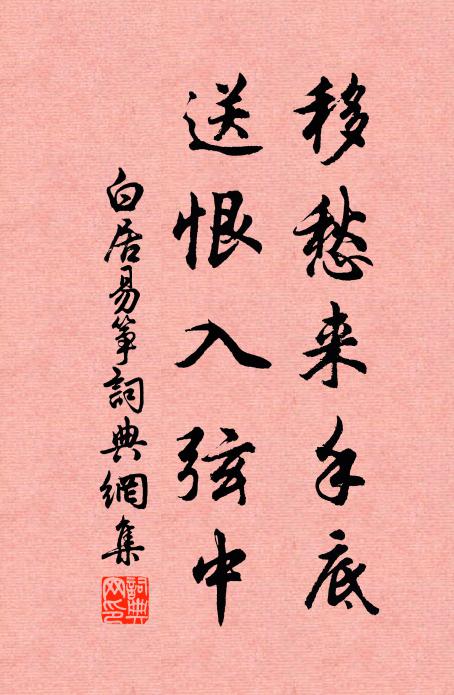 移愁来手底
送恨入弦中
白居易筝詞典網集
詞典网印